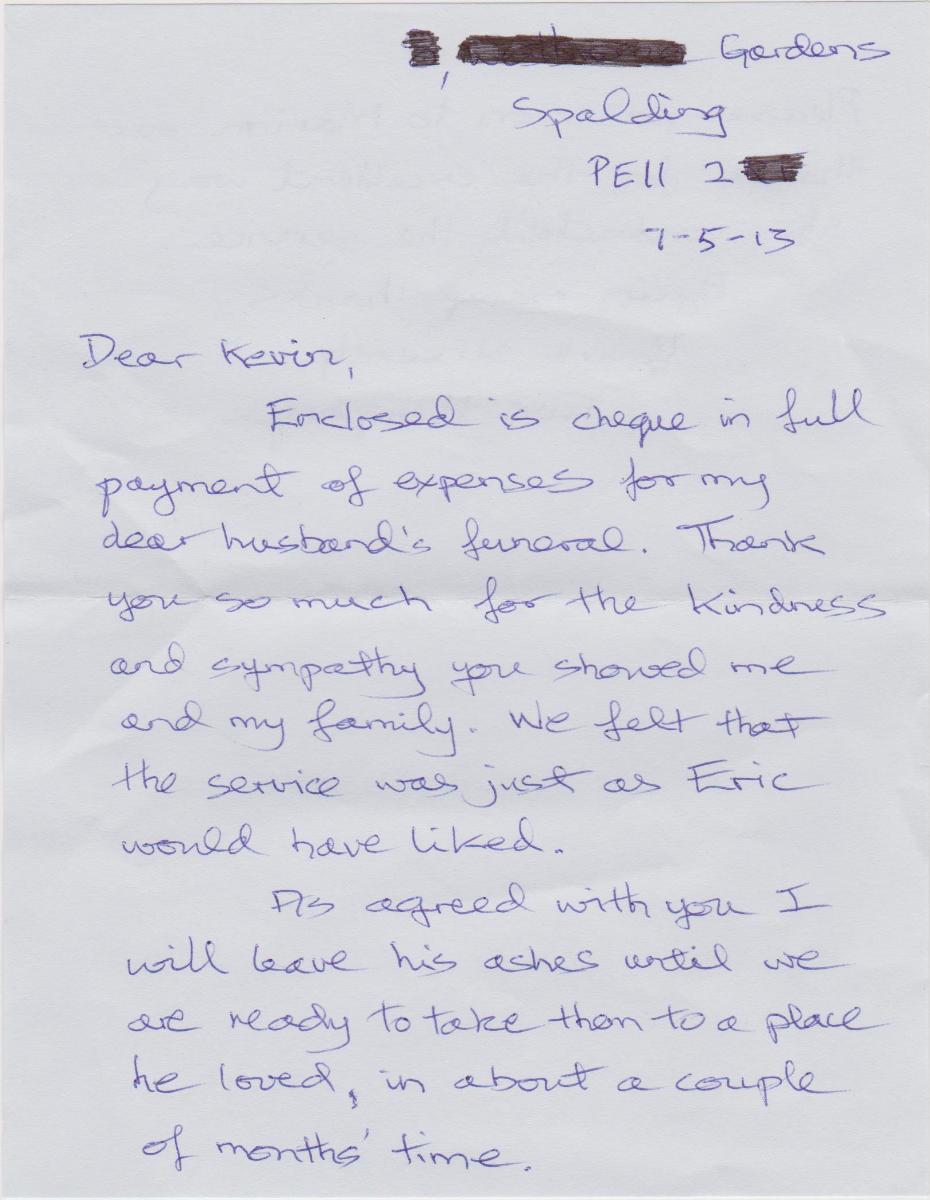 Gardens
Spalding
PE11 2
7-5-13
Dear Kevin,
Enclosed is cheque in full
payment of expenses for my
dear husband's funeral. Thank
you so much for the kindness
and sympathy you showed me
and my family. We felt that
the service was just as Eric
would have liked.
As agreed with you I
will leave his ashes until we
are ready to take them to a place
he loved, in about a couple
of months' time.